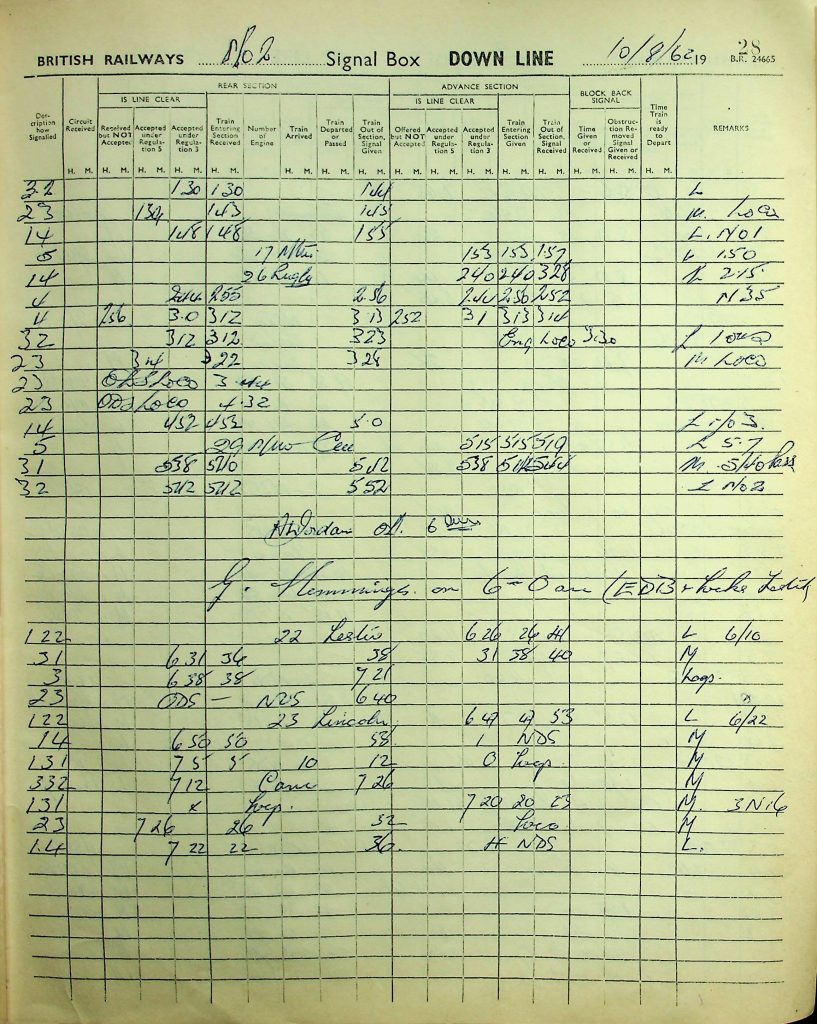 28
BRITISH RAILWAYS No 2 Signal Box DOWN LINE 10/8/62 19 B.R. 24665
REAR SECTION ADVANCE SECTION BLOCK BACK SIGNAL
IS LINE CLEAR IS LINE CLEAR
Description how Signalled Circuit Received Received but NOT Accepted Accepted under Regulation 5 Accepted under Regulation 3 Train Entering Section Received Number of Engine Train Arrived Train Departed or Passed Train Out of Section, Signal Given Offered but NOT Accepted Accepted under Regulation 5 Accepted under Regulation 3 Train Entering Section Given Train Out of Section, Signal Received Time Given or Received Obstruction Removed Signal Given or Received Time Train is ready to Depart REMARKS
H. M. H. M. H. M. H. M. H. M. H. M. H. M. H. M. H. M. H. M. H. M. H. M. H. M. H. M. H. M. H. M.
32 130 130 144 L
23 134 143 143 M. Loco
14 148 148 155 L. No 1
5 17 153 153 157 L 150
14 26 Rugby 240 240 328 L 215
4 244 255 256 244 256 252 N35
4 256 3.0 312 313 252 31 313 314
32 312 312 323 Eng Loco 3.30 L
23 314 322 328 M Loco
23 ODS Loco 3.44
23 ODS Loco 4.32
14 452 453 5.0 L No 3.
5 29 515 515 519 L 5.7
31 538 540 542 538 542 544 M 5/40 Pass
32 542 542 552 L No 2
Jordan off. 6
G. Hemmings on 6-0 am (EDB +
122 22 Leslie 6 26 26 41 L 6/10
31 6 31 36 38 31 38 40 M
3 6 38 38 7 21 Logs.
23 ODS — NDS 6 40
122 23 Lincoln 6 47 47 53 L 6/22
14 6 50 50 58 1 NDS M
131 7 5 5 10 12 0 M
332 7 12 7 26 M
131 x 7 20 20 23 M. 3N16
23 7 26 26 32 Loco M
1.4 7 22 22 36 H NDS L.